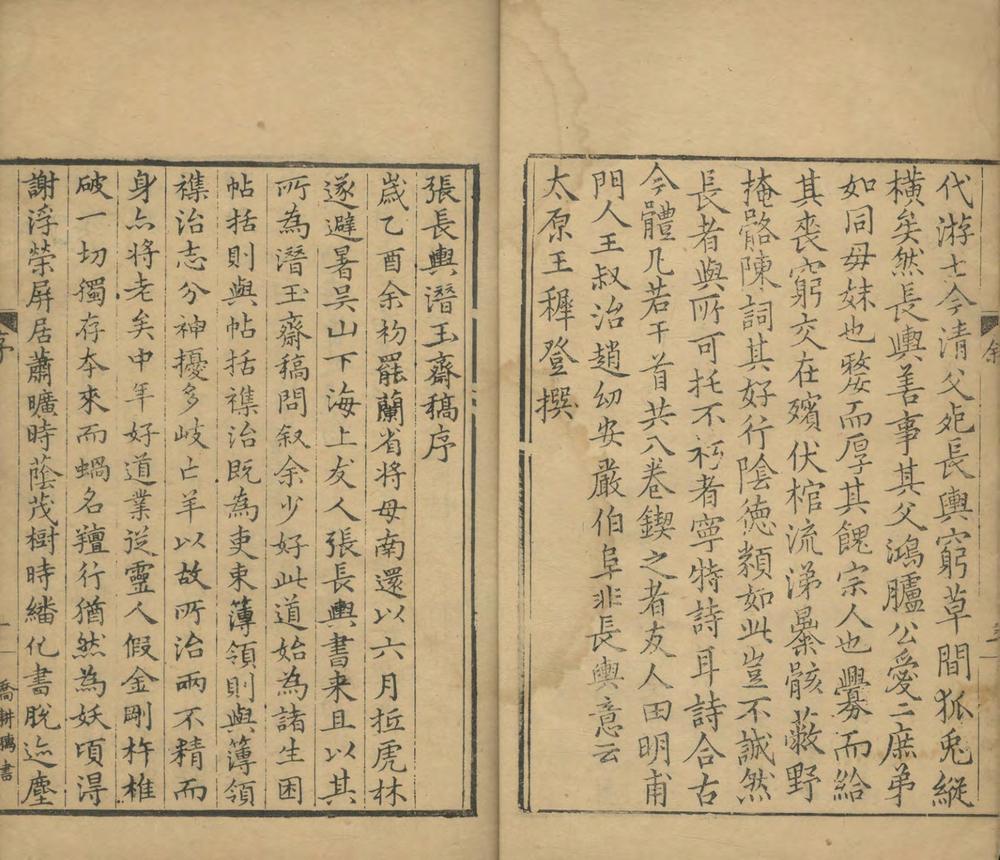 代游士今清父死長輿窮草間狐兎縱
橫矣然長輿善事其父鴻臚公愛二庶弟
如同毋妹也嫠而厚其餽宗人也釁而給
其喪窮交在殯伏棺流涕暴骸蔽野
掩骼陳詞其好行陰德類如此豈不誠然
長者與所可托不朽者寧特詩耳詩合古
今體凡若干首共八卷鍥之者友人田明甫
門人王叔治趙幼安嚴伯阜非長輿意云
太原王穉登撰
張長輿潛玉齋稿序
歲乙酉余初罷蘭省將母南還以六月抵虎林
遂避暑吳山下海上友人張長輿書来且以其
所為潛玉齋稿問叙余少好此道始為諸生困
帖括則與帖括襍治既為吏束簿領則與簿領
襍治志分神擾多岐亡羊以故所治兩不精而
身亦將老矣中年好道業從靈人假金剛杵椎
破一切獨存本來而蝸名羶行猶然為妖頃得
謝浮榮屏居蕭曠時蔭茂樹時繙化書脫迹塵
序
一